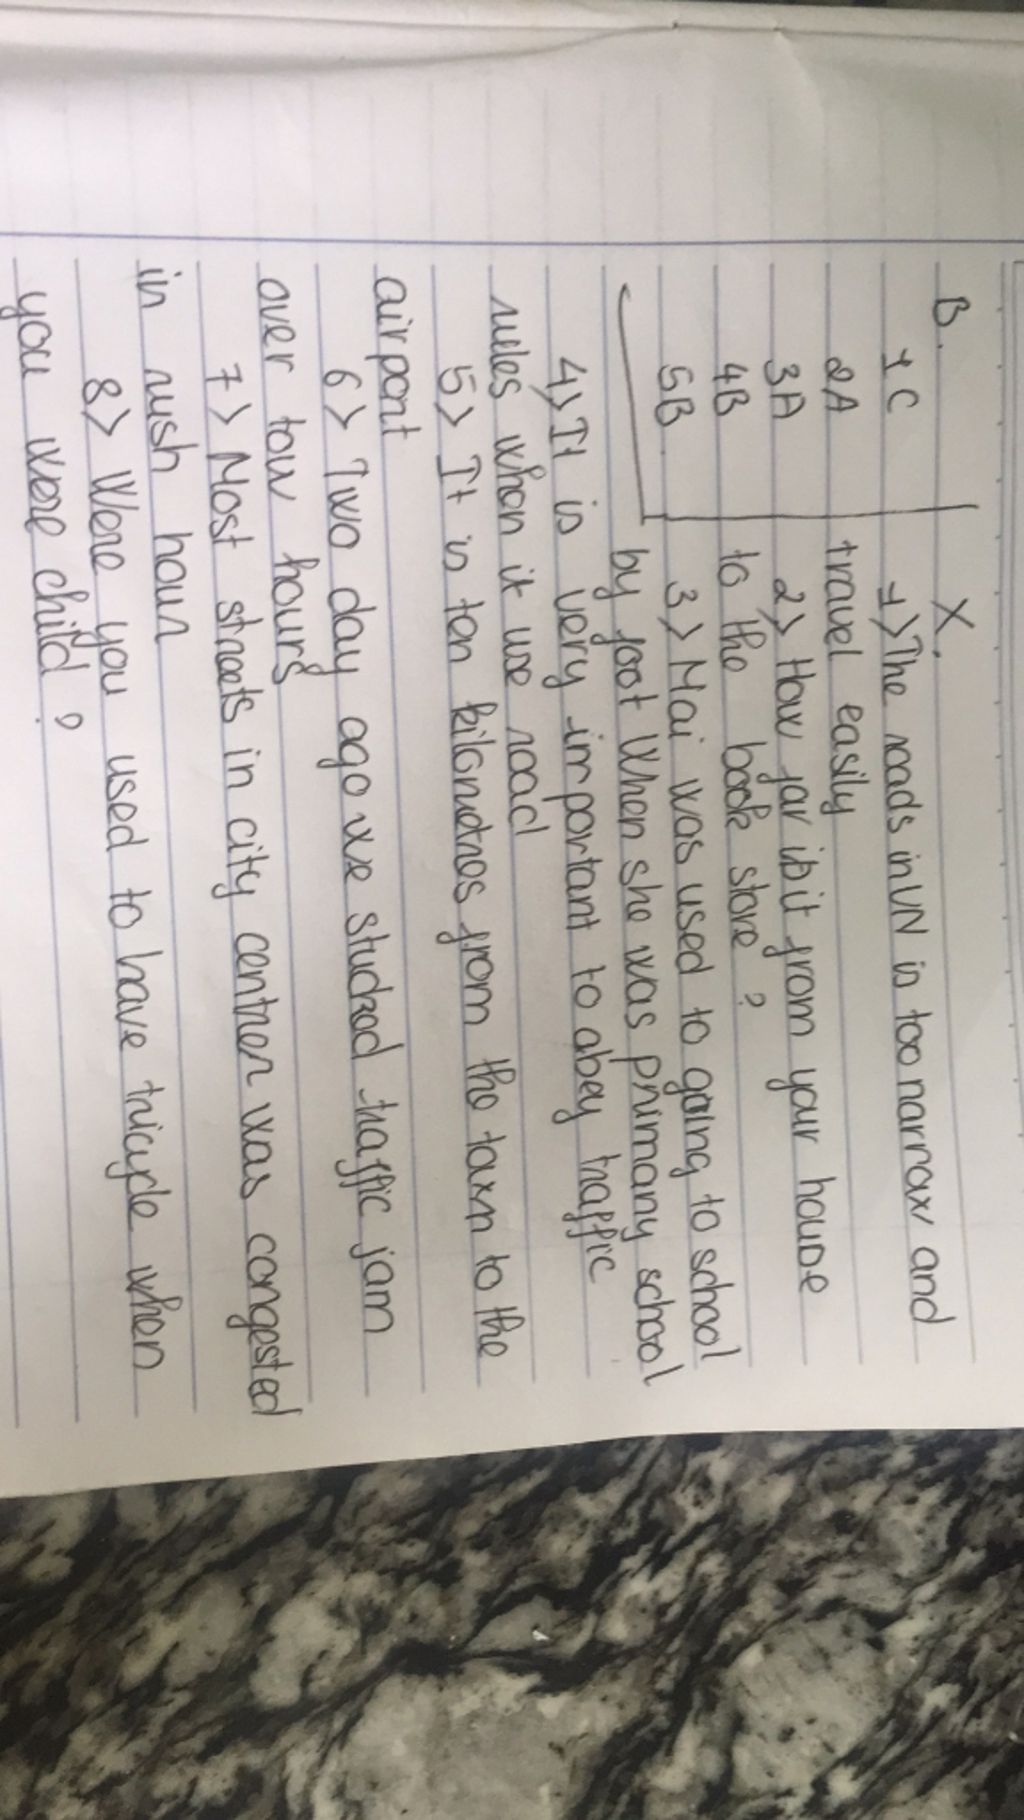 B.
1 C
2A
3A
4B
5B
X.
1> The roads in VN is too narrow and
travel easily
2> How far is it from your house
to the book store ?
3> Mai was used to going to school
by foot When she was primary school
4> It is very important to abey traffic
rules when it use road
5> It is ten kilometres from the town to the
airport
6> Two day ago we stucked traffic jam
over tow hours
7> Most streets in city center was congested
in rush hour
8> Were you used to have tricycle when
you were child ?